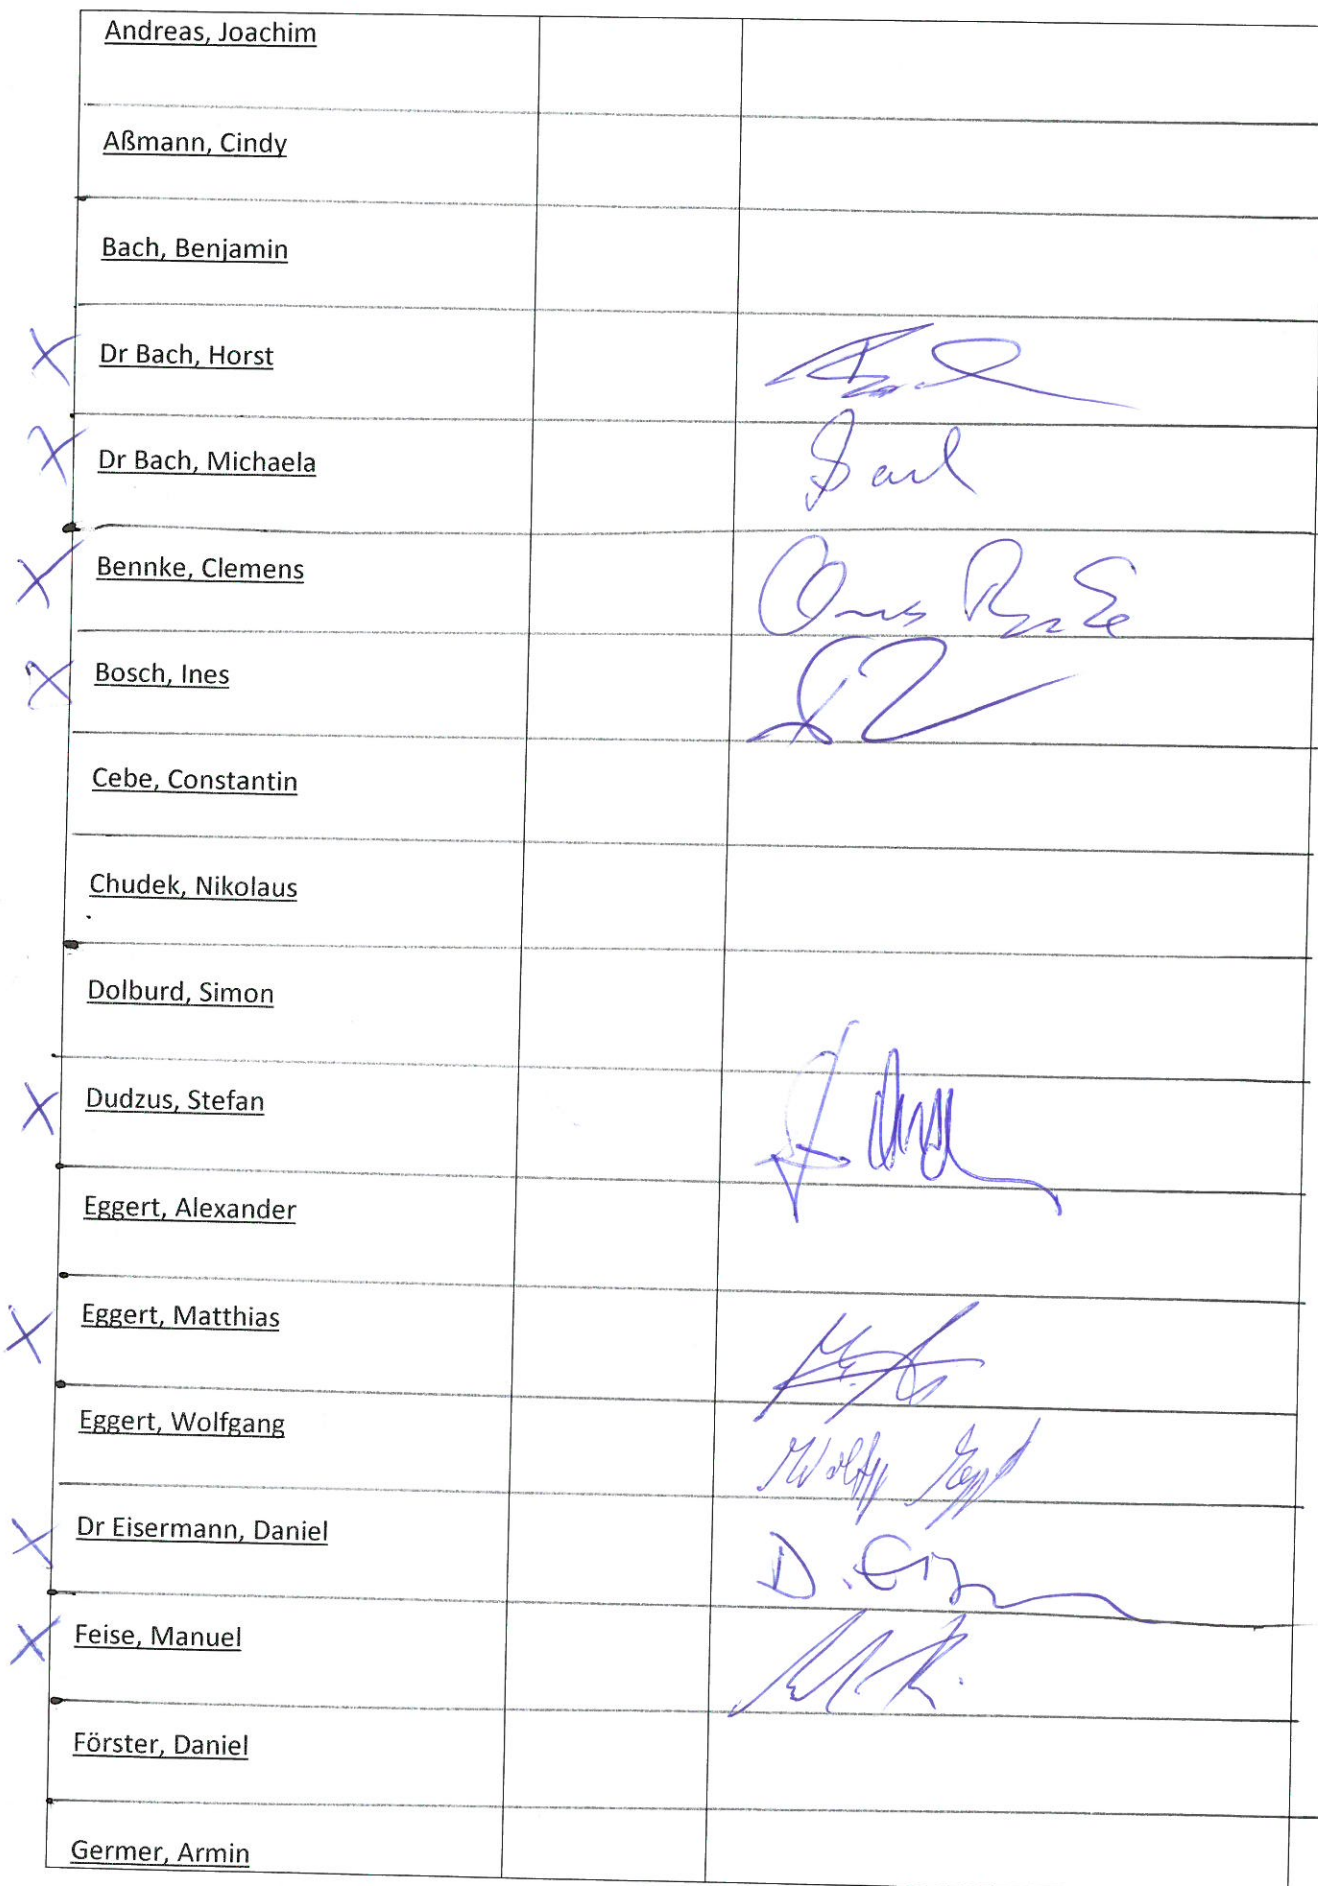 Andreas, Joachim
Aßmann, Cindy
Bach, Benjamin
X Dr Bach, Horst
X Dr Bach, Michaela
X Bennke, Clemens
X Bosch, Ines
Cebe, Constantin
Chudek, Nikolaus
Dolburd, Simon
X Dudzus, Stefan
Eggert, Alexander
X Eggert, Matthias
Eggert, Wolfgang
X Dr Eisermann, Daniel D.
X Feise, Manuel
Förster, Daniel
Germer, Armin